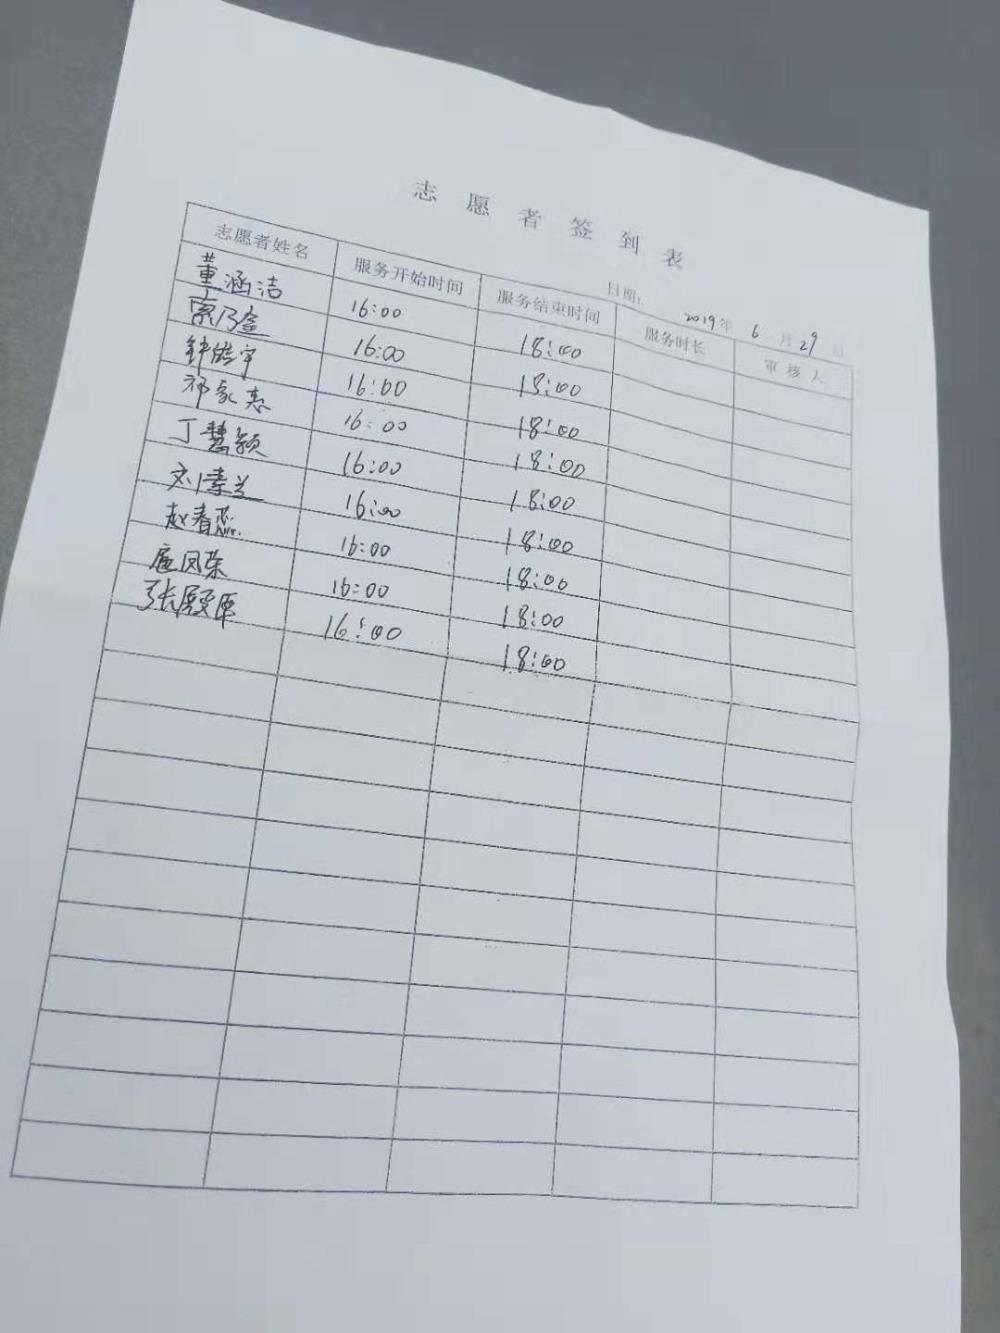 志愿者签到表
日期: 2019年 6月29日
志愿者姓名 服务开始时间 服务结束时间 服务时长 审核人
董涵洁 16:00 18:00
16:00 18:00
钟皓宇 16:00 18:00
祁家惠 16:00 18:00
丁慧颖 16:00 18:00
刘素兰 16:00 18:00
赵春燕 16:00 18:00
庞凤荣 16:00 18:00
16:00 18:00